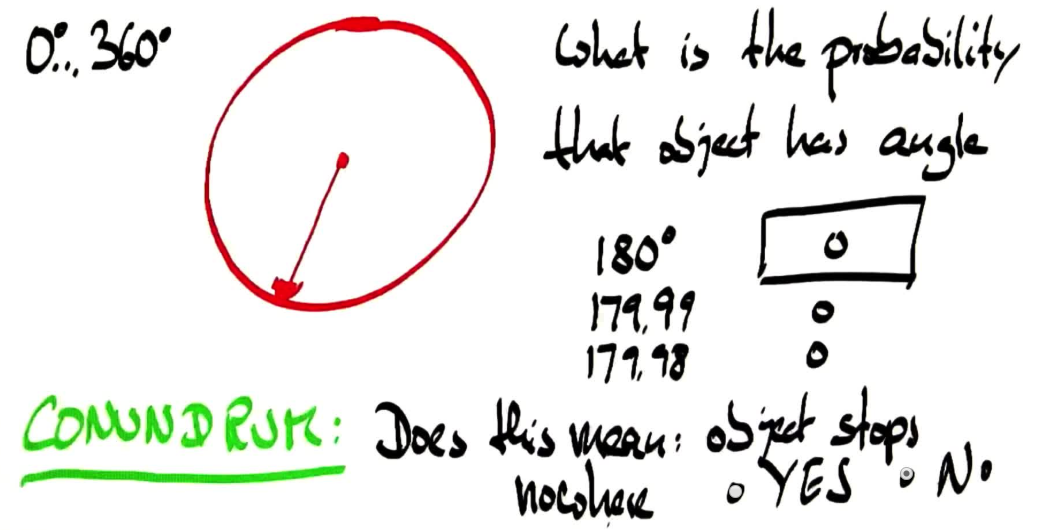 0°... 360°
What is the probability
that object has angle
180° 0
179.99 0
179.98 0
CONUNDRUM: Does this mean: object stops
nowhere YES No